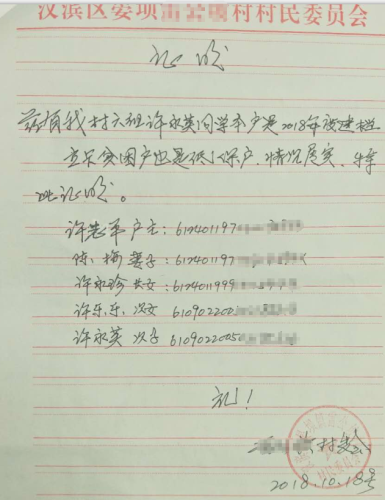 汉滨区晏坝 村村民委员会
证明
兹有我村六班许永英同学本户是2018年被建档
立卡贫困户也是低保户,情况属实、特
此证明。
许忠平 户主:612401197
陈梅 妻子:612401197
许永珍 长女:612401999
许乐乐、次女 610902200
许永英 次子 6109022005
礼!
村委会
2018.10.18号